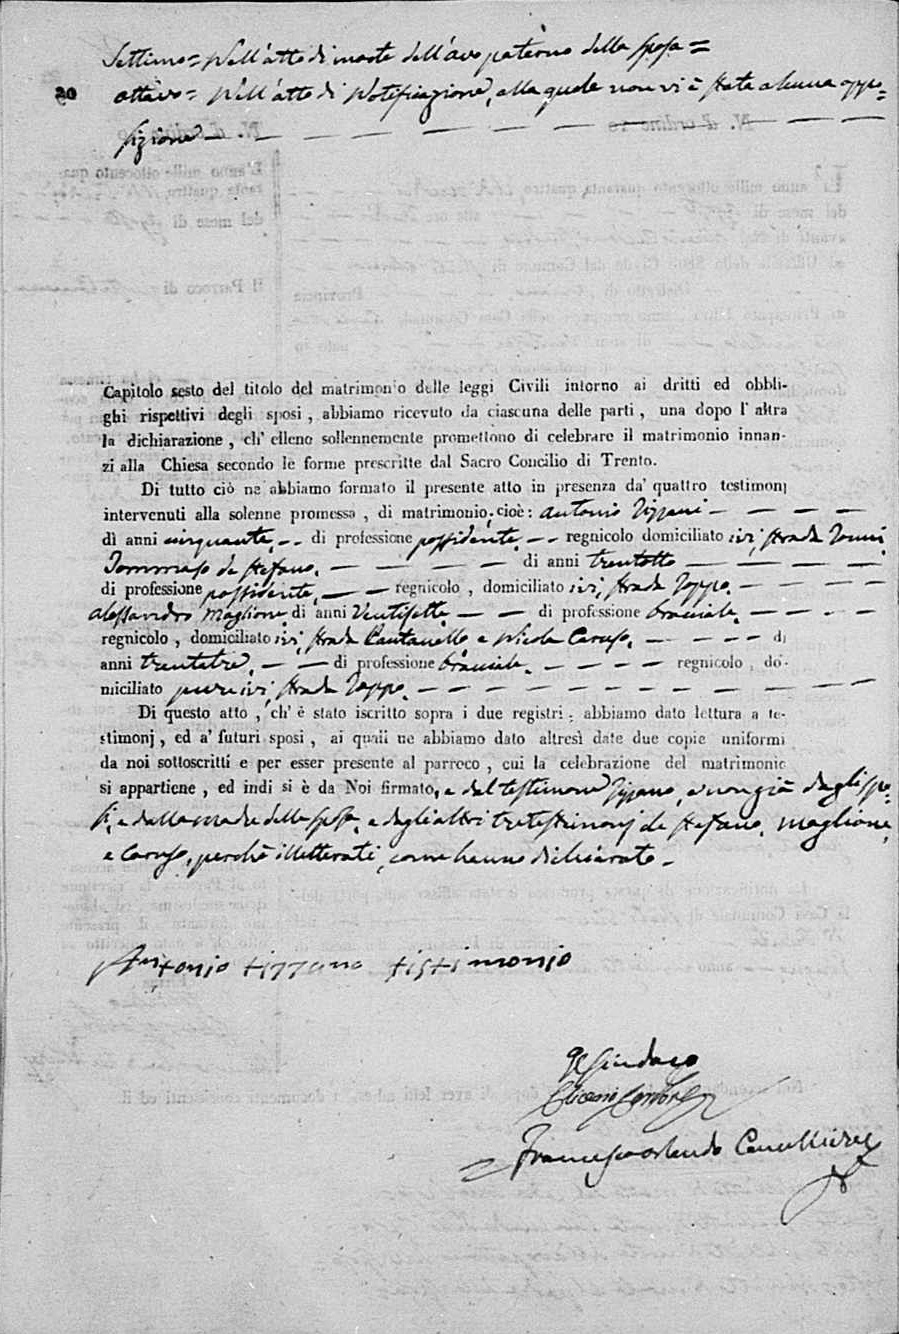 Settimo = Nell'atto di morte dell'avo paterno della sposa =
20 ottavo = Nell'atto di Notificazione, alla quale non vi è stata alcuna oppo=
sizione — — — — — — — — — —
Capitolo sesto del titolo del matrimonio delle leggi Civili intorno ai dritti ed obbli-
ghi rispettivi degli sposi, abbiamo ricevuto da ciascuna delle parti, una dopo l'altra
la dichiarazione, ch'elleno sollennemente promettono di celebrare il matrimonio innan-
zi alla Chiesa secondo le forme prescritte dal Sacro Concilio di Trento.
Di tutto ciò ne abbiamo formato il presente atto in presenza da' quattro testimonj
intervenuti alla solenne promessa, di matrimonio, cioè: Antonio Tizzani — — — —
di anni cinquanta, — — di professione possidente, — — regnicolo domiciliato ivi, strada
Tommaso de Stefano. — — — — — di anni trentotto — — — — —
di professione possidente, — — regnicolo, domiciliato ivi, strada Toppo. — — — —
Alessandro Maglione di anni Ventisette — — di professione bracciale. — — — —
regnicolo, domiciliato ivi, strada Cantanello e Nicola Caruso, — — — — di
anni trentatre, — — di professione bracciale. — — — — regnicolo, do-
miciliato pure ivi, strada Toppo. — — — — — — — — — —
Di questo atto, ch'è stato iscritto sopra i due registri, abbiamo dato lettura a te-
stimonj, ed a' futuri sposi, ai quali ne abbiamo dato altresì date due copie uniformi
da noi sottoscritti e per esser presente al parroco, cui la celebrazione del matrimonio
si appartiene, ed indi si è da Noi firmato, e dal testimone Tizzano, e non già dagli spo=
si, e dalla madre della sposa, e dagli altri tre testimonj de Stefano, Maglione,
e Caruso, perchè illetterati, come hanno dichiarato —
Antonio tizzano tistimonio
Il Sindaco
Francesco Orlando Cancelliere